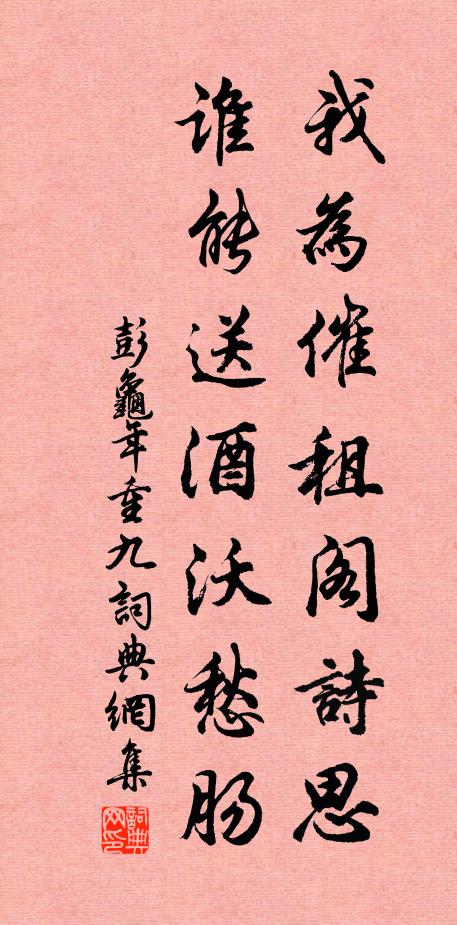 我為催租阁詩思
誰能送酒沃愁腸
彭龜年重九詞典網集
詞典网印